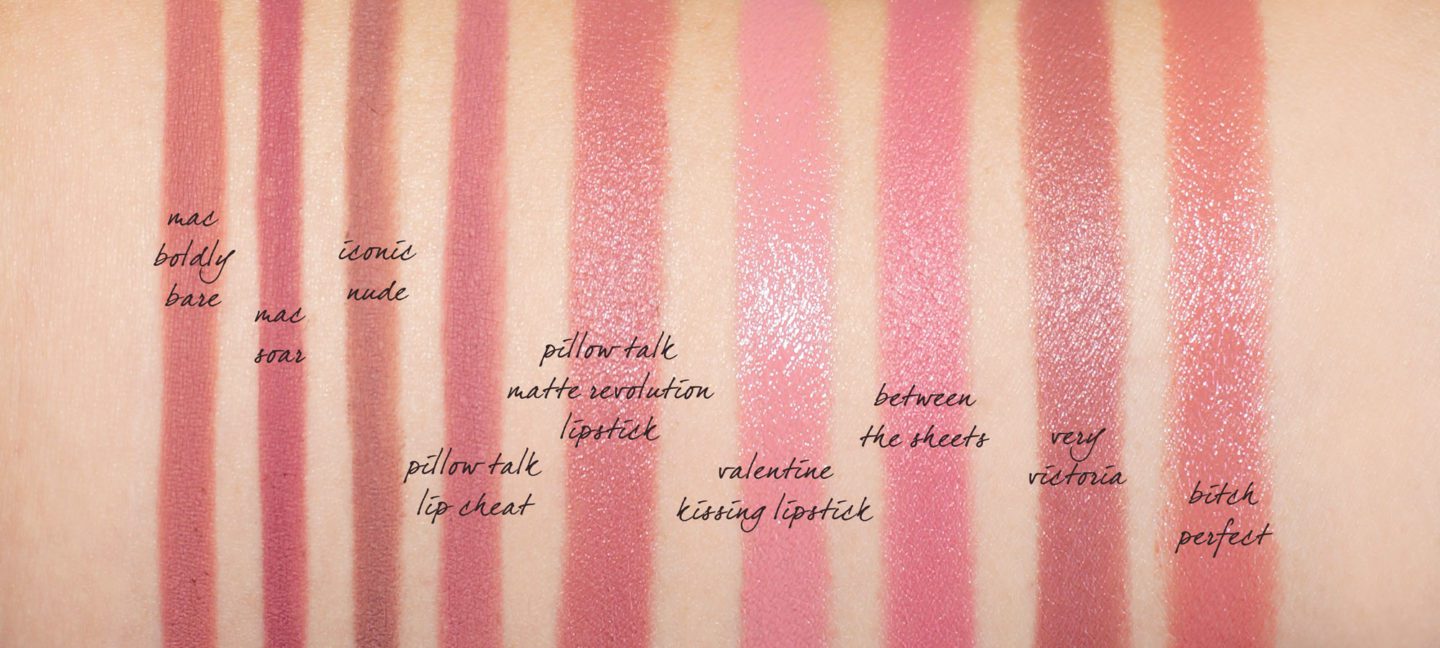 mac
boldly
bare
mac
soar
iconic
nude
pillow talk
lip cheat
pillow talk
matte revolution
lipstick
valentine
kissing lipstick
between
the sheets
very
victoria
bitch
perfect